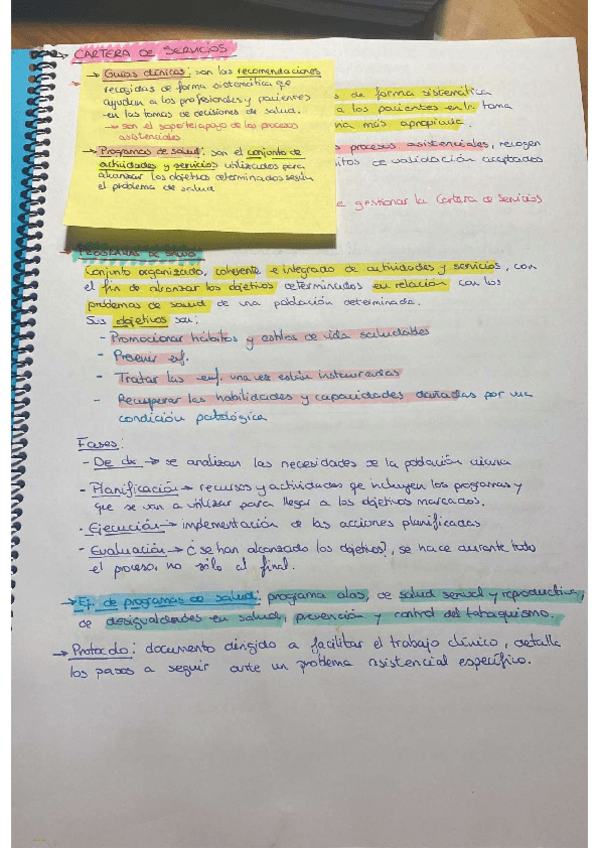 → CARTERA DE SERVICIOS
→ Guías clínicas: son las recomendaciones
recogidas de forma sistemática que
ayudan a los profesionales y pacientes
en las tomas de decisiones de salud.
→ son el soporte/apoyo de los procesos
asistenciales
→ Programas de salud: son el conjunto de
actividades y servicios utilizados para
alcanzar los objetivos determinados según
el problema de salud
de forma sistemática
a los pacientes en la toma
más apropiada.
procesos asistenciales, recogen
de validación aceptados
gestionar la Cartera de Servicios
→ PROGRAMAS DE SALUD
Conjunto organizado, coherente e integrado de actividades y servicios, con
el fin de alcanzar los objetivos determinados en relación con los
problemas de salud de una población determinada.
Sus objetivos son:
- Promocionar hábitos y estilos de vida saludables
- Prevenir enf.
- Tratar las enf. una vez están instauradas
- Recuperar las habilidades y capacidades dañadas por una
condición patológica
Fases:
- De dx → se analizan las necesidades de la población diana
- Planificación → recursos y actividades que incluyen los programas y
que se van a utilizar para llegar a los objetivos marcados.
- Ejecución → implementación de las acciones planificadas
- Evaluación → ¿se han alcanzado los objetivos?, se hace durante todo
el proceso, no sólo al final.
→ Ej. de programas de salud: programa alas, de salud sexual y reproductiva,
de desigualdades en salud, prevención y control del tabaquismo.
→ Protocolo: documento dirigido a facilitar el trabajo clínico, detalla
los pasos a seguir ante un problema asistencial específico.